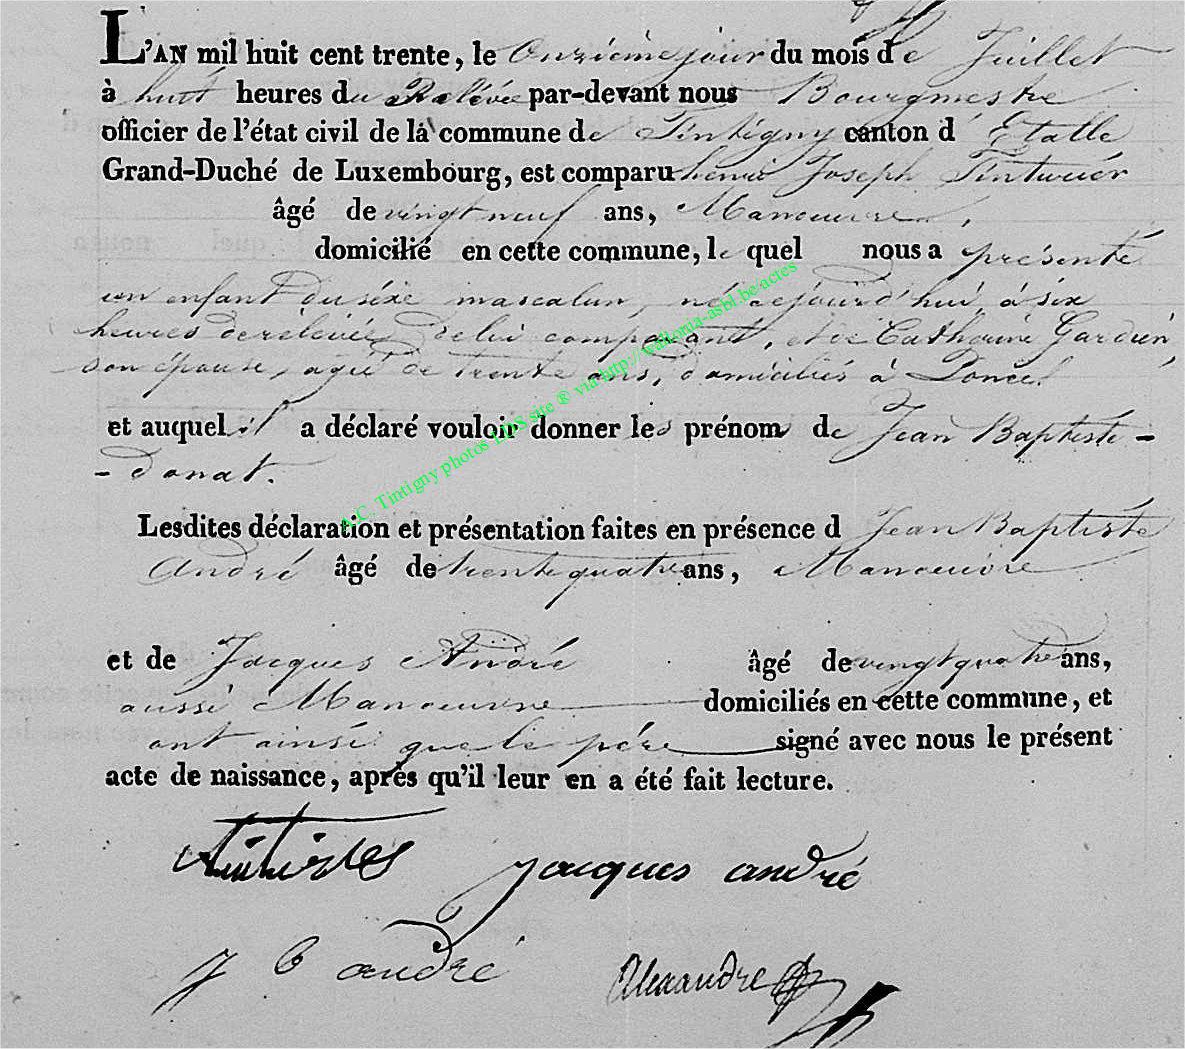 L'AN mil huit cent trente, le Onzième jour du mois de Juillet
à huit heures du Relévée par-devant nous Bourgmestre
officier de l'état civil de la commune de Tintigny canton d' Etalle
Grand-Duché de Luxembourg, est comparu henri Joseph
âgé de vingt neuf ans, Manoeuvre,
domicilié en cette commune, le quel nous a présenté
un enfant du séxe masculin, né cejourd'hui à six
heures de rélévée, de lui comparant, et de Catherine Gardien
son épouse, agée de trente ans, domiciliés à Poncel
et auquel il a déclaré vouloir donner les prénom de Jean Baptiste -
- donat.
Lesdites déclaration et présentation faites en présence d Jean Baptiste
André âgé de trente quatre ans, Manoeuvre
et de Jacques André âgé de vingt quatre ans,
aussi Manoeuvre domiciliés en cette commune, et
ont ainsi que le pére signé avec nous le présent
acte de naissance, aprés qu'il leur en a été fait lecture.
jacques andré
J B andré Alexandre
A.C. Tintigny photos LDS site ® via http://wallonia-asbl.be/actes